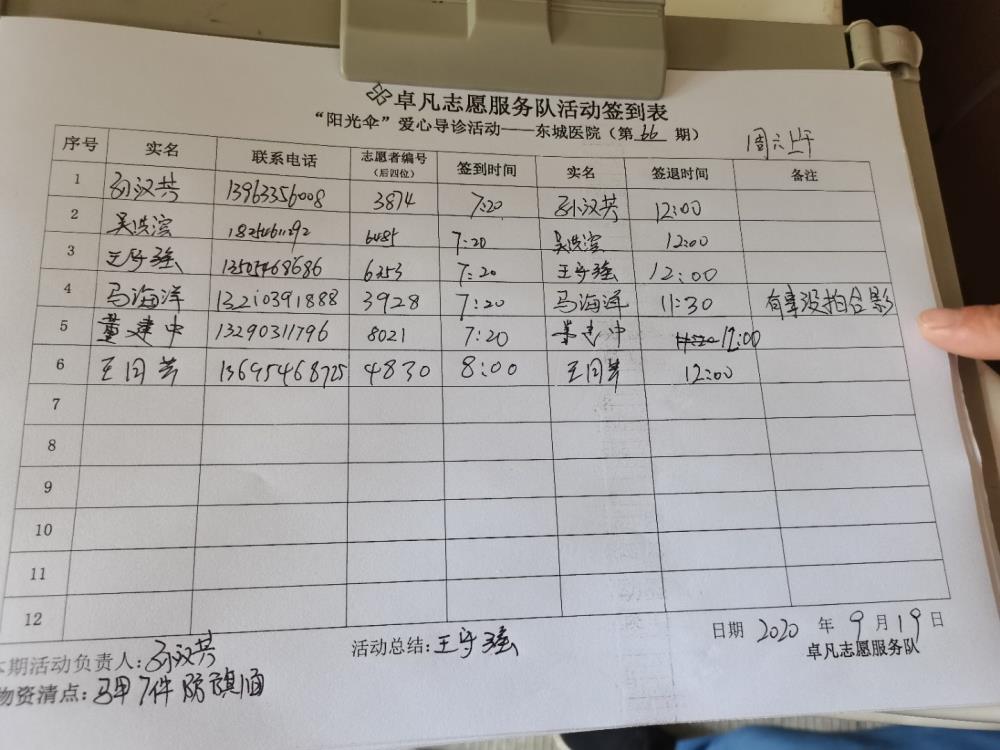 卓凡志愿服务队活动签到表
“阳光伞”爱心导诊活动——东城医院（第 66 期）
周六上午
序号 实名 联系电话 志愿者编号（后四位） 签到时间 实名 签退时间 备注
1 孙汉芸 13963356008 3874 7:20 孙汉芸 12:00
2 吴洪滨 18254611292 6485 7:20 吴洪滨 12:00
3 王守强 13505468686 6253 7:20 王守强 12:00
4 马海洋 13210391888 3928 7:20 马海洋 11:30 有事没拍合影
5 董建中 13290311796 8021 7:20 董建中 12:00
6 王同芳 13695468725 4830 8:00 王同芳 12:00
7
8
9
10
11
12
本期活动负责人：孙汉芸 活动总结：王守强 日期 2020 年 9 月 19 日
物资清点：马甲7件 队旗 卓凡志愿服务队